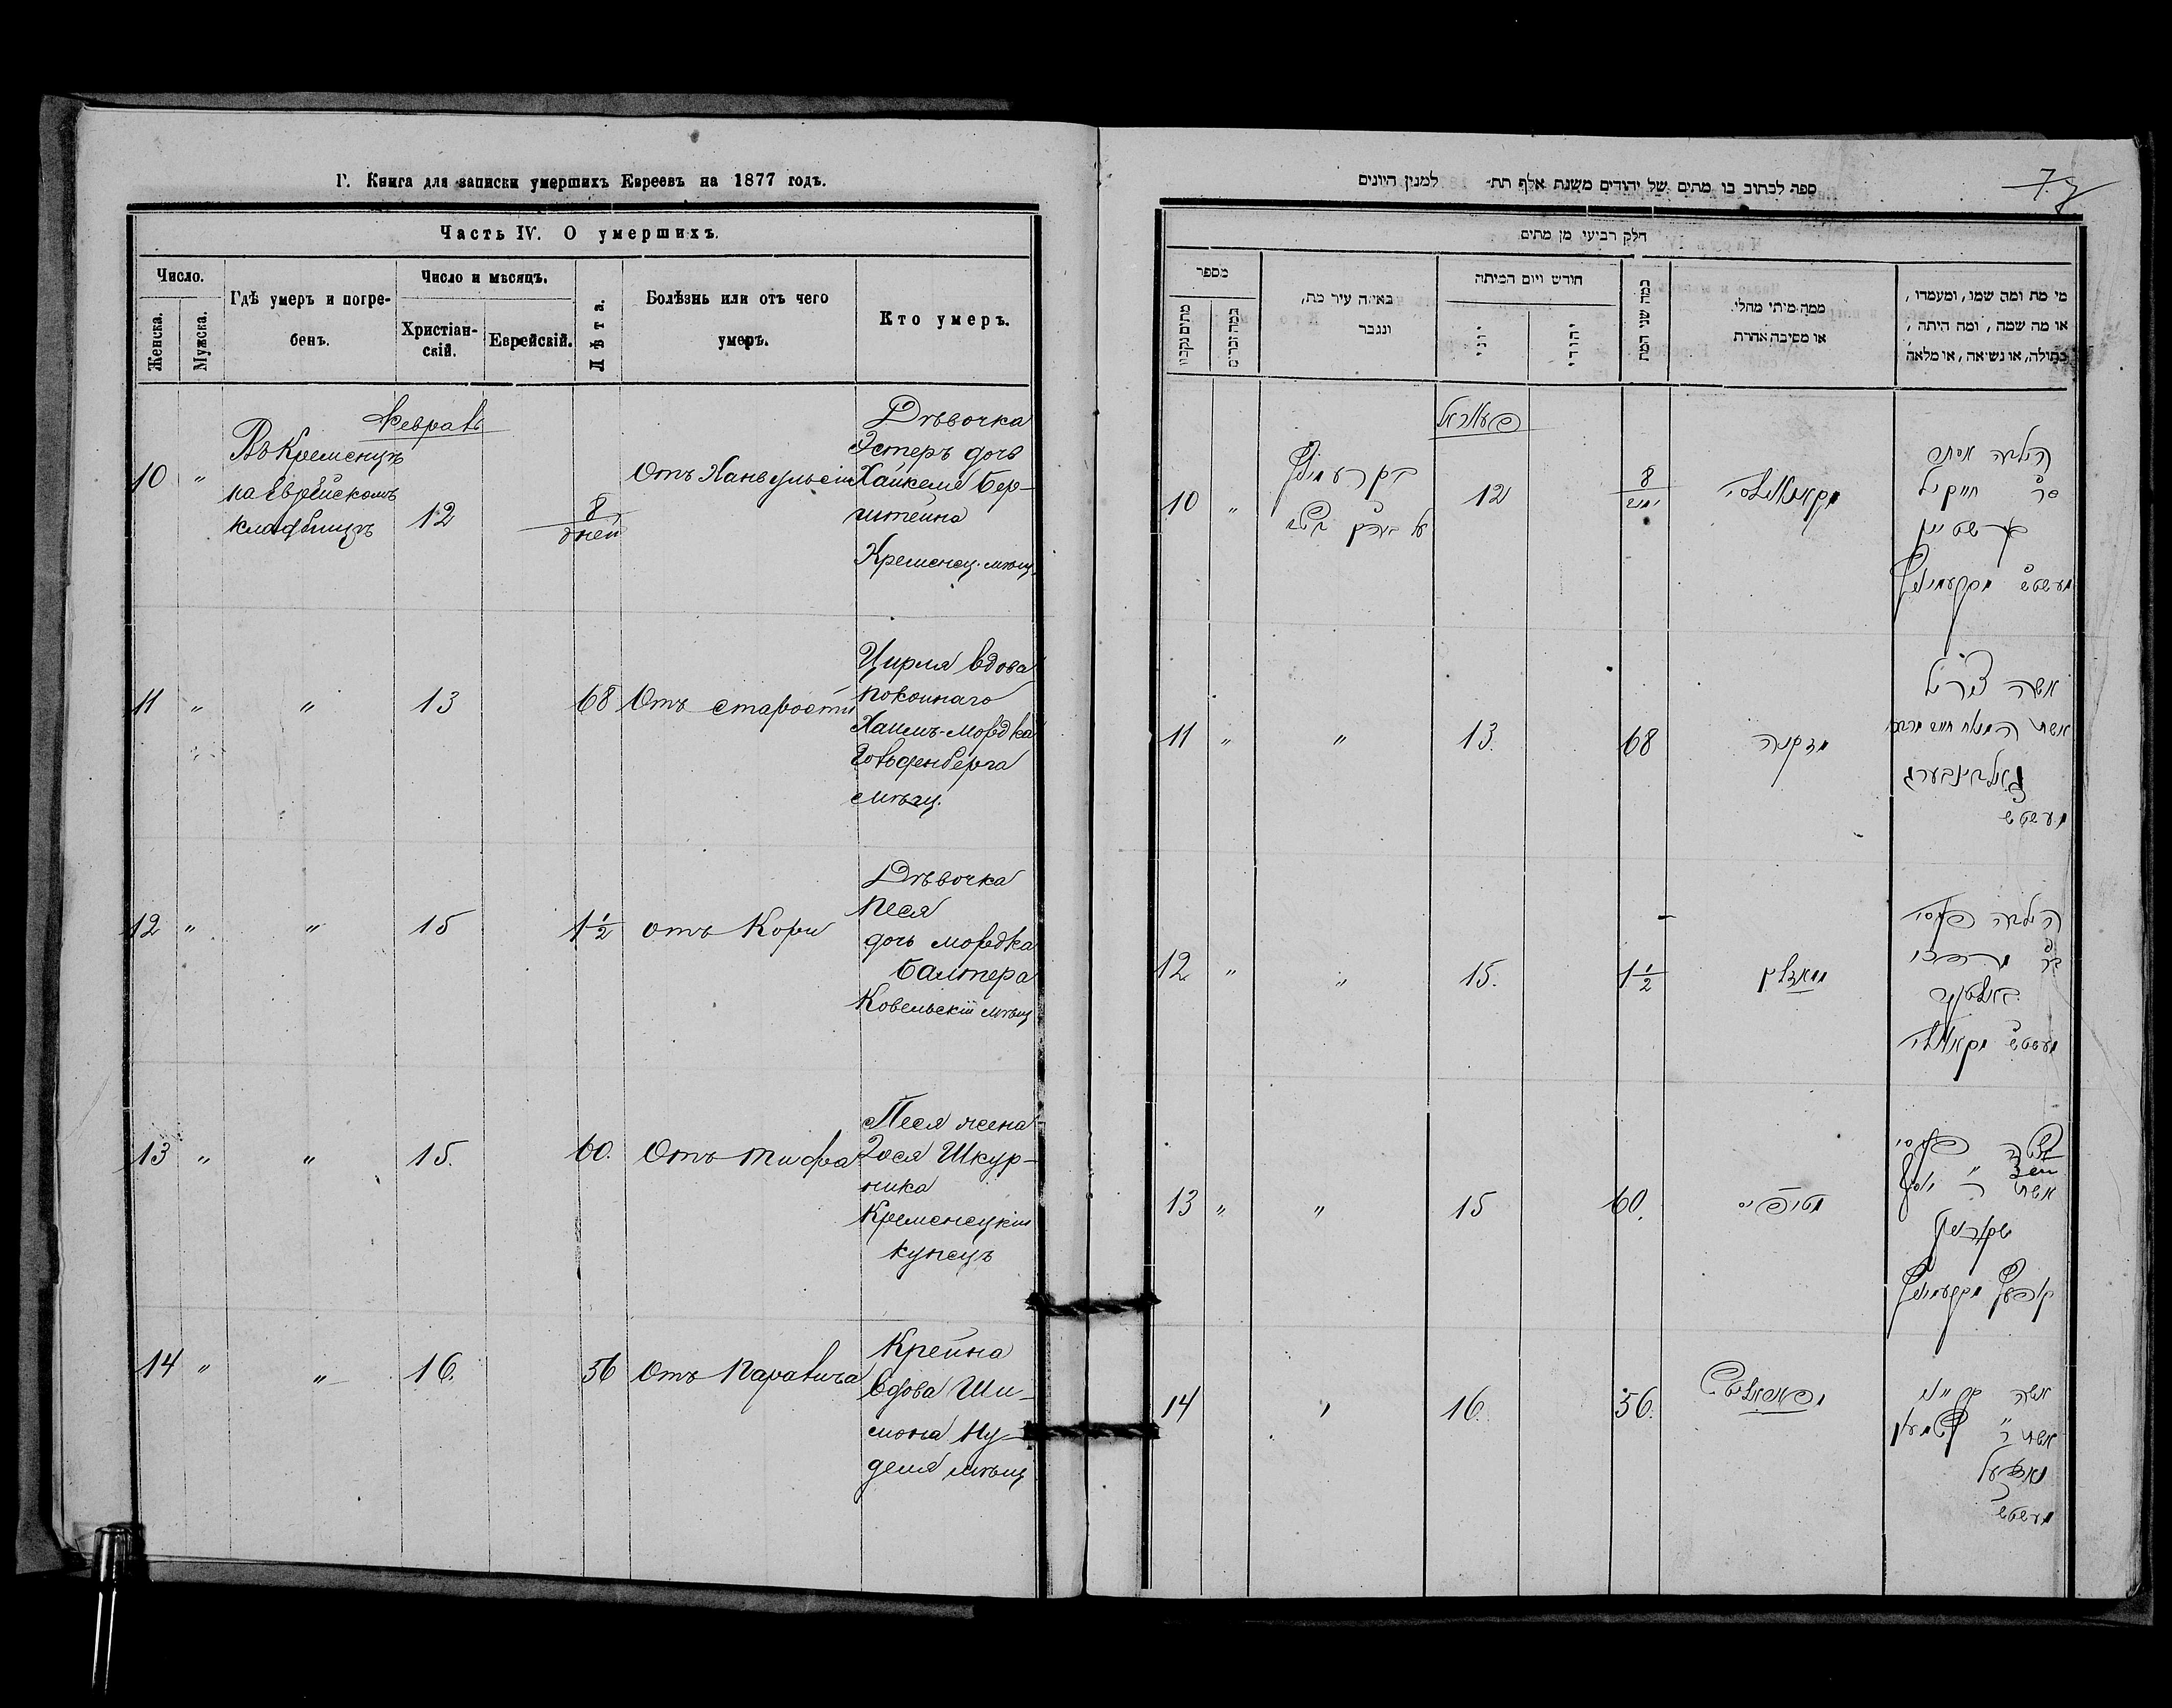 Г. Книга для записки умершихъ Евреевъ на 1877 годъ.
Часть IV. О умершихъ.
Число.
Женска.
Мужска.
Гдѣ умеръ и погре-
бенъ.
Число и мѣсяцъ.
Христіан-
скій.
Еврейскій.
Лѣта.
Болѣзнь или отъ чего
умеръ.
Кто умеръ.
Февраль
10 "
Въ Кременцѣ
на Еврейскомъ
кладбищѣ
12
8
дней
Отъ
Дѣвочка
Эстеръ дочь
Хайкеля Бер-
штейна
Кременец. мѣщ.
11 " " 13 68 Отъ старости
Цирля вдова
покойнаго
Хаимъ-Мордка
Гольденберга
мѣщ.
12 " " 15 1½ отъ Кори
Дѣвочка
Песя
дочь Мордка
Балтера
Ковельскій мѣщ
13 " " 15. 60. Отъ тифа
Песя жена
Шкур-
ника
Кременецкій
купецъ
14 " " 16. 56 Отъ Паралича
Крейна
вдова Ши-
мона Ну-
деля мѣщ
ספר לכתוב בו מתים של יהודים משנת אלף תת- למנין היונים
7.
חלק רביעי מן מתים
מספר
מתים נקבות
במה זכרים
באיזה עיר מת,
ונגבר
חודש ויום המיתה
יוני
יהודי
כמה שני המת
ממה מיתי מחלי.
או מסיבה אחרת
מי מת ומה שמו, ומעמדו,
או מה שמה, ומה היתה,
בתולה, או נשיאה, או מלאה
פעווראל
10 "
12
8
ימים
הילדה אסתר
חייקיל
בערשטיין
11 " " 13. 68 מזקנה
אשה צירל
אשת המנוח חיים מרדכי
גאלדינבערג
מעשטש
12 " " 15. 1½ מאזלין
הילדה פעסי
מרדכי
באלטער
13 " " 15 60. מטיפיס
פעסי
אשת ר יוסף
שקורניק
14 " 16. 56.
אשה קריינו
אשת ר שמעון
נאדעל
מעשטש